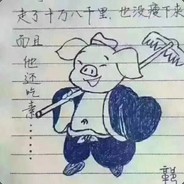 走了十万八千里,也没瘦下来
而且
他还吃素......